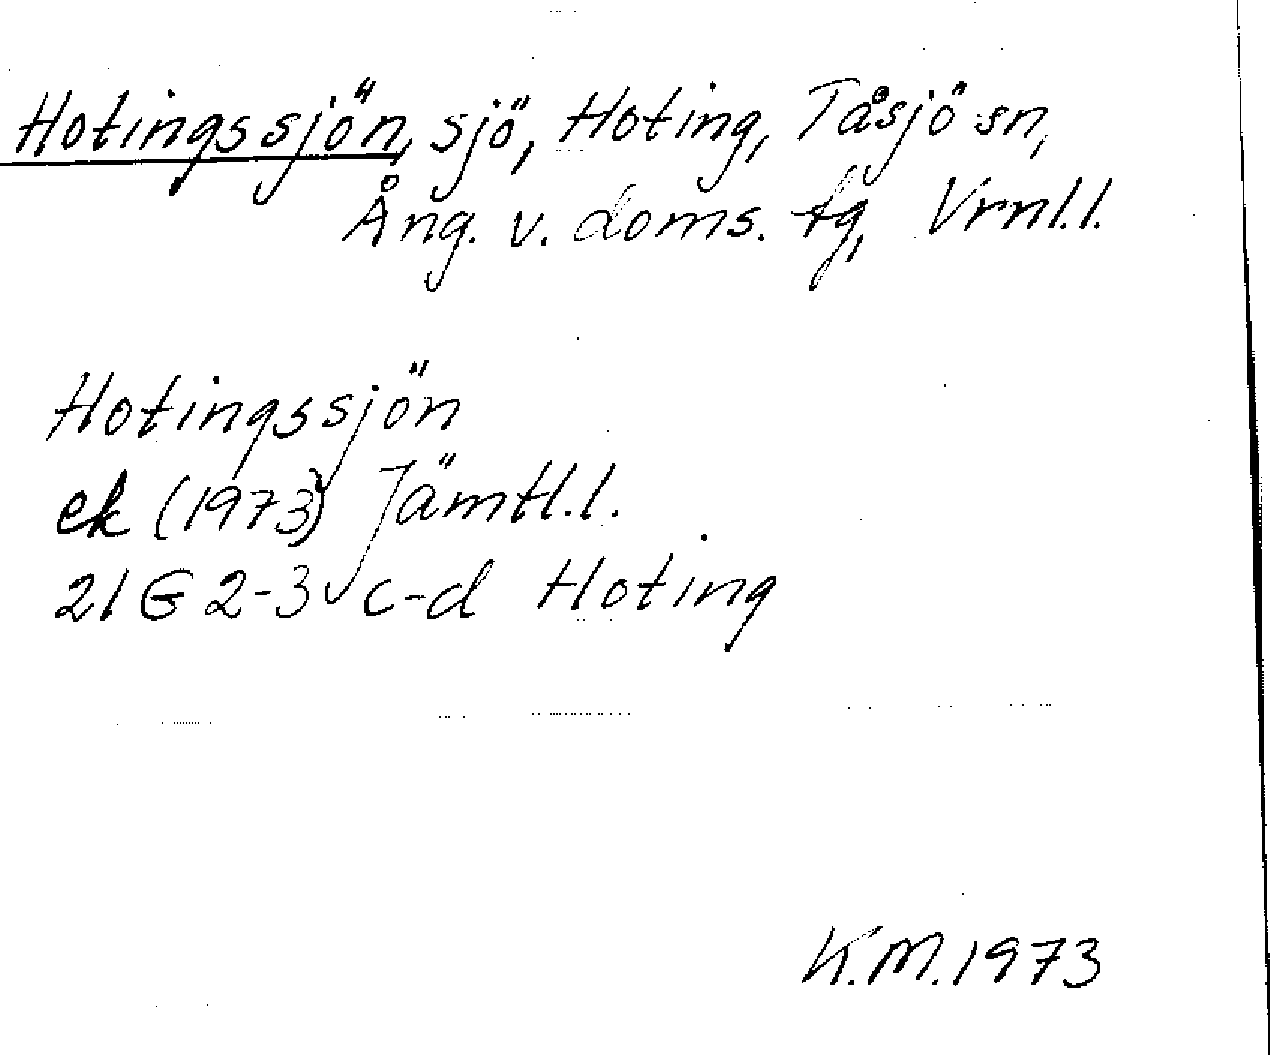 Hotingssjön, sjö, Hoting, Tåsjö sn,
Ång. v. doms. tg, Vrnl.l.
Hotingssjön
ek (1973) Jämtl.l.
21G 2-3 c-d Hoting
K.M. 1973